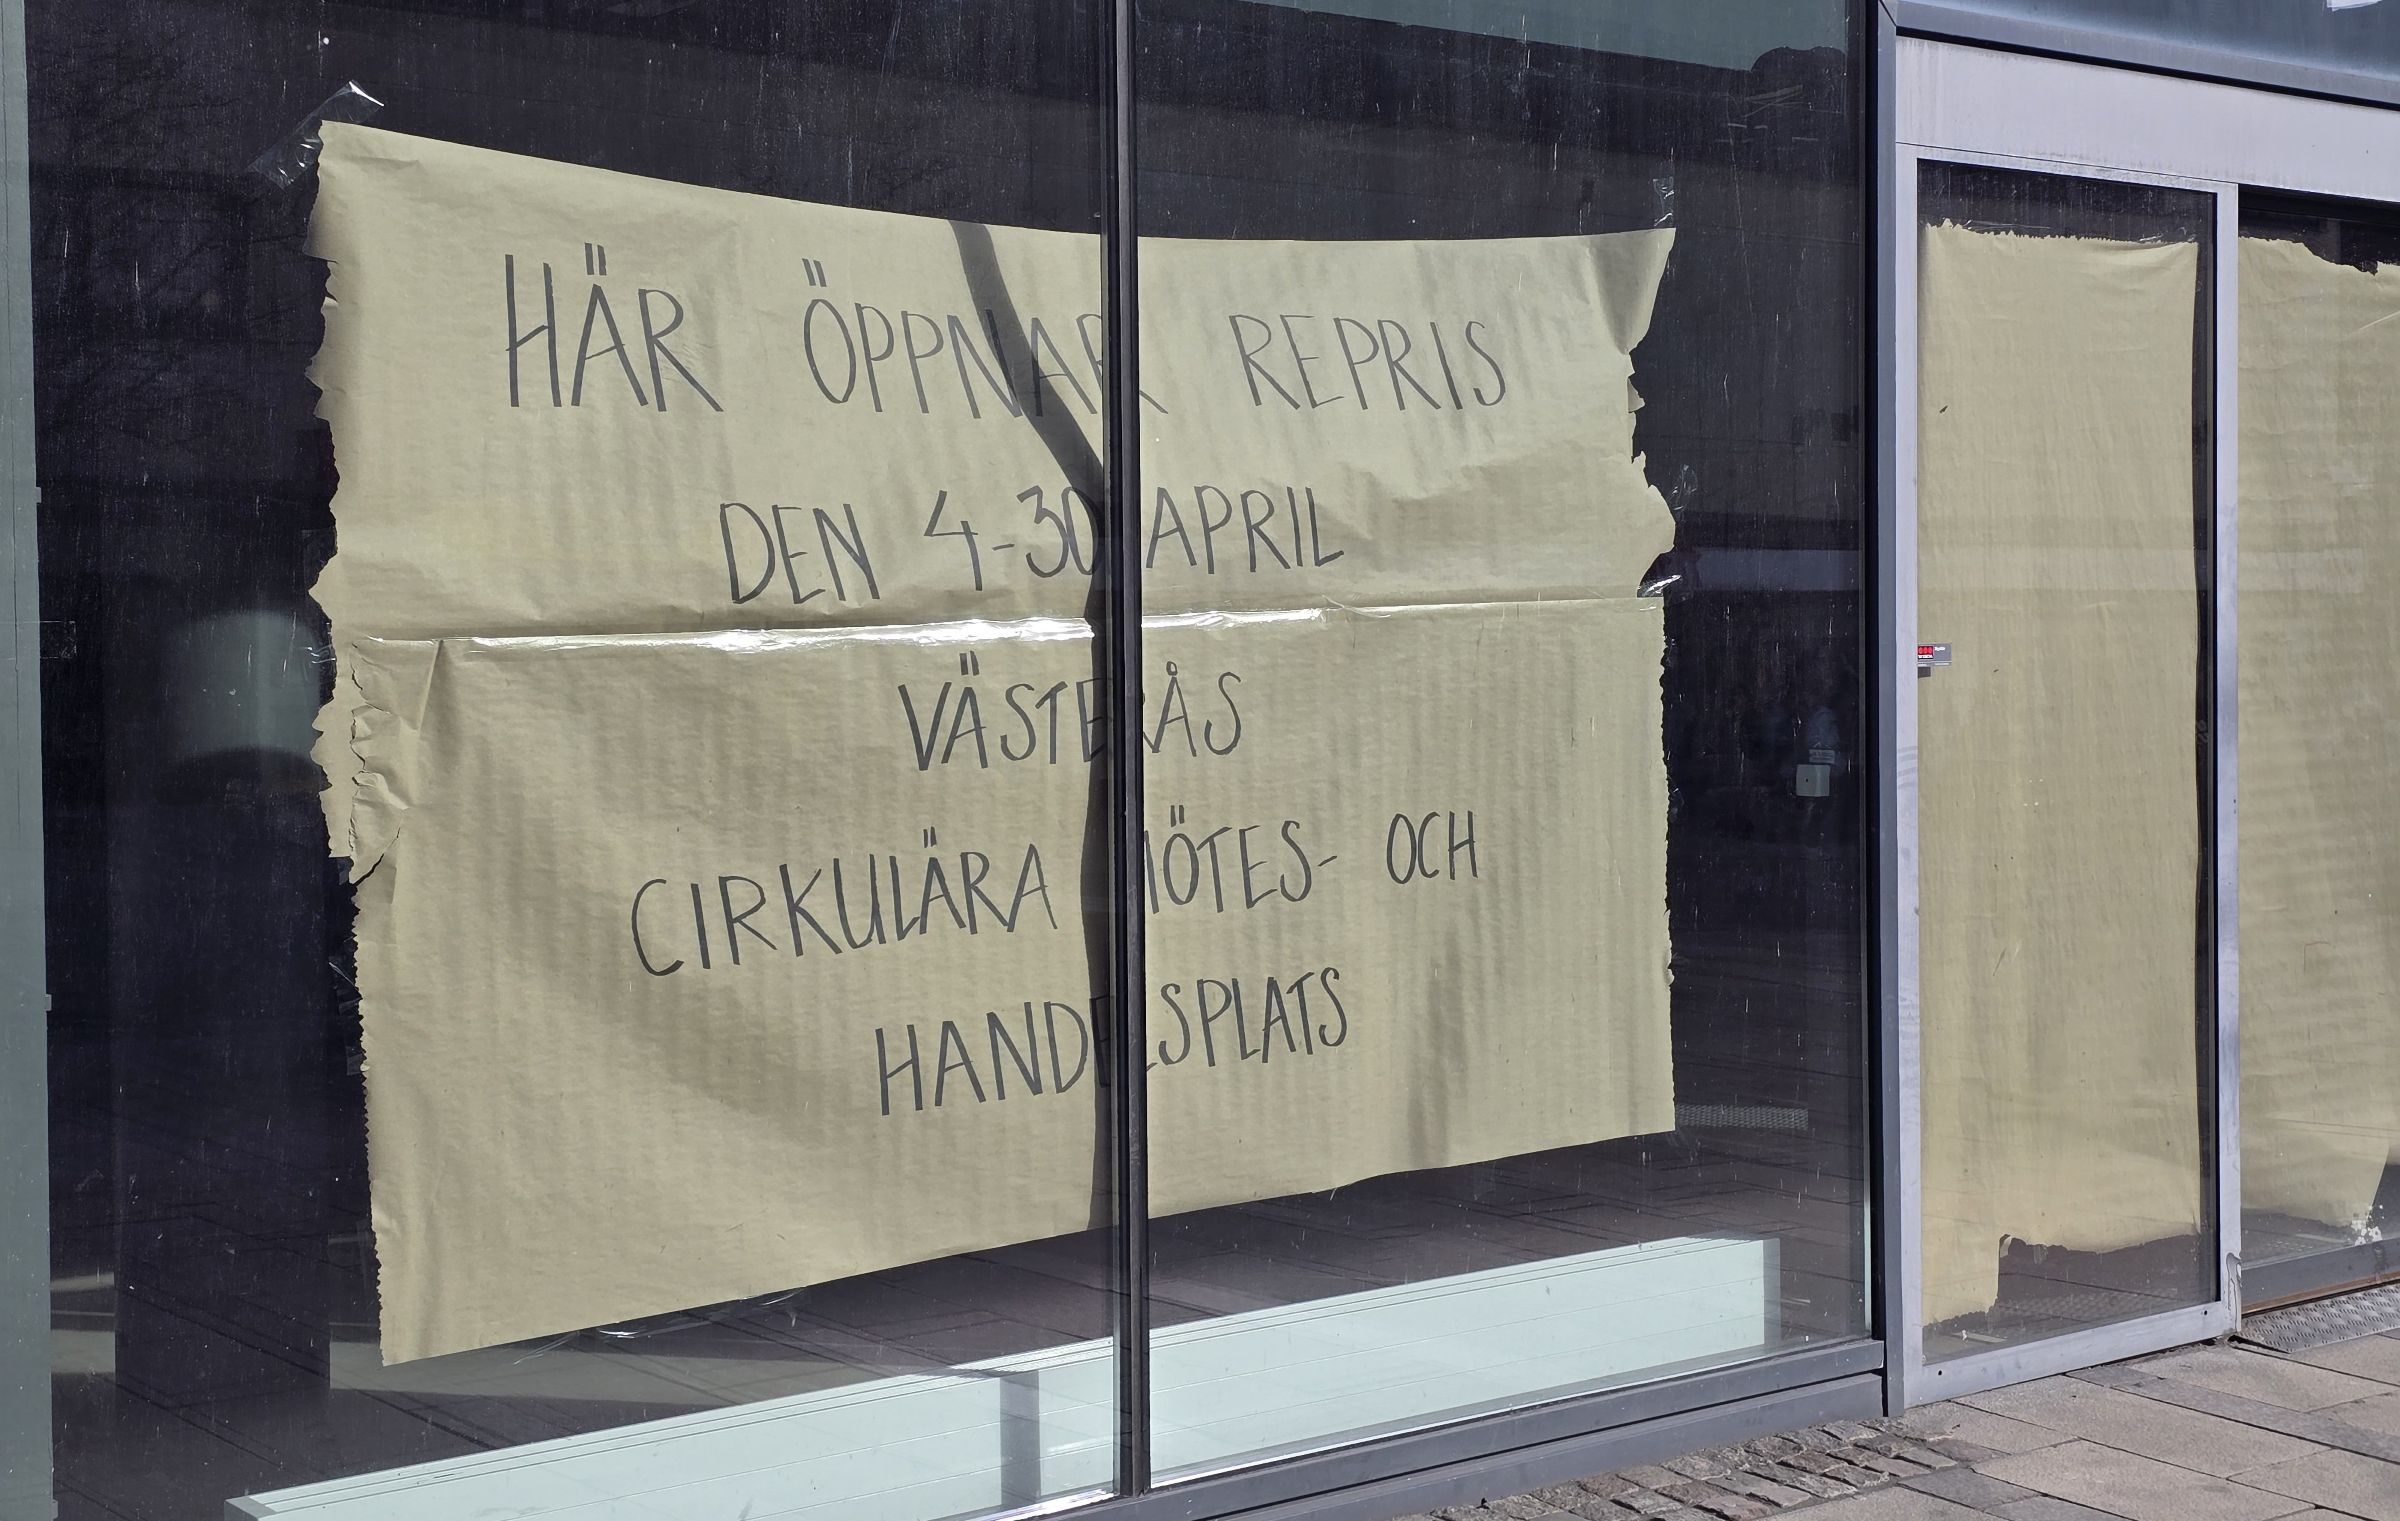 HÄR ÖPPNAR REPRIS
DEN 4-30 APRIL
VÄSTERÅS
CIRKULÄRA MÖTES- OCH
HANDELSPLATS